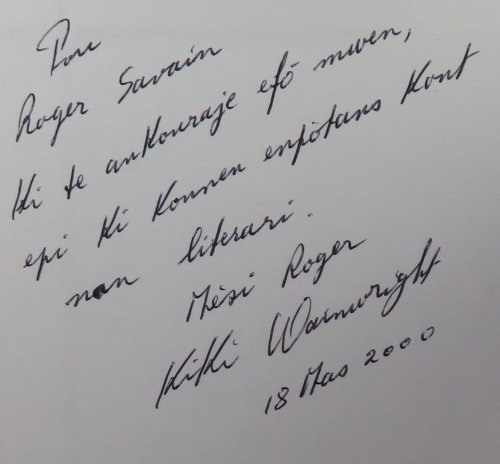 Pou
Roger Savain
Ki te ankouraje efò mwen,
epi ki konnen enpòtans kont
nan literari.
Mèsi Roger
KiKi Wainwright
18 Mas 2000